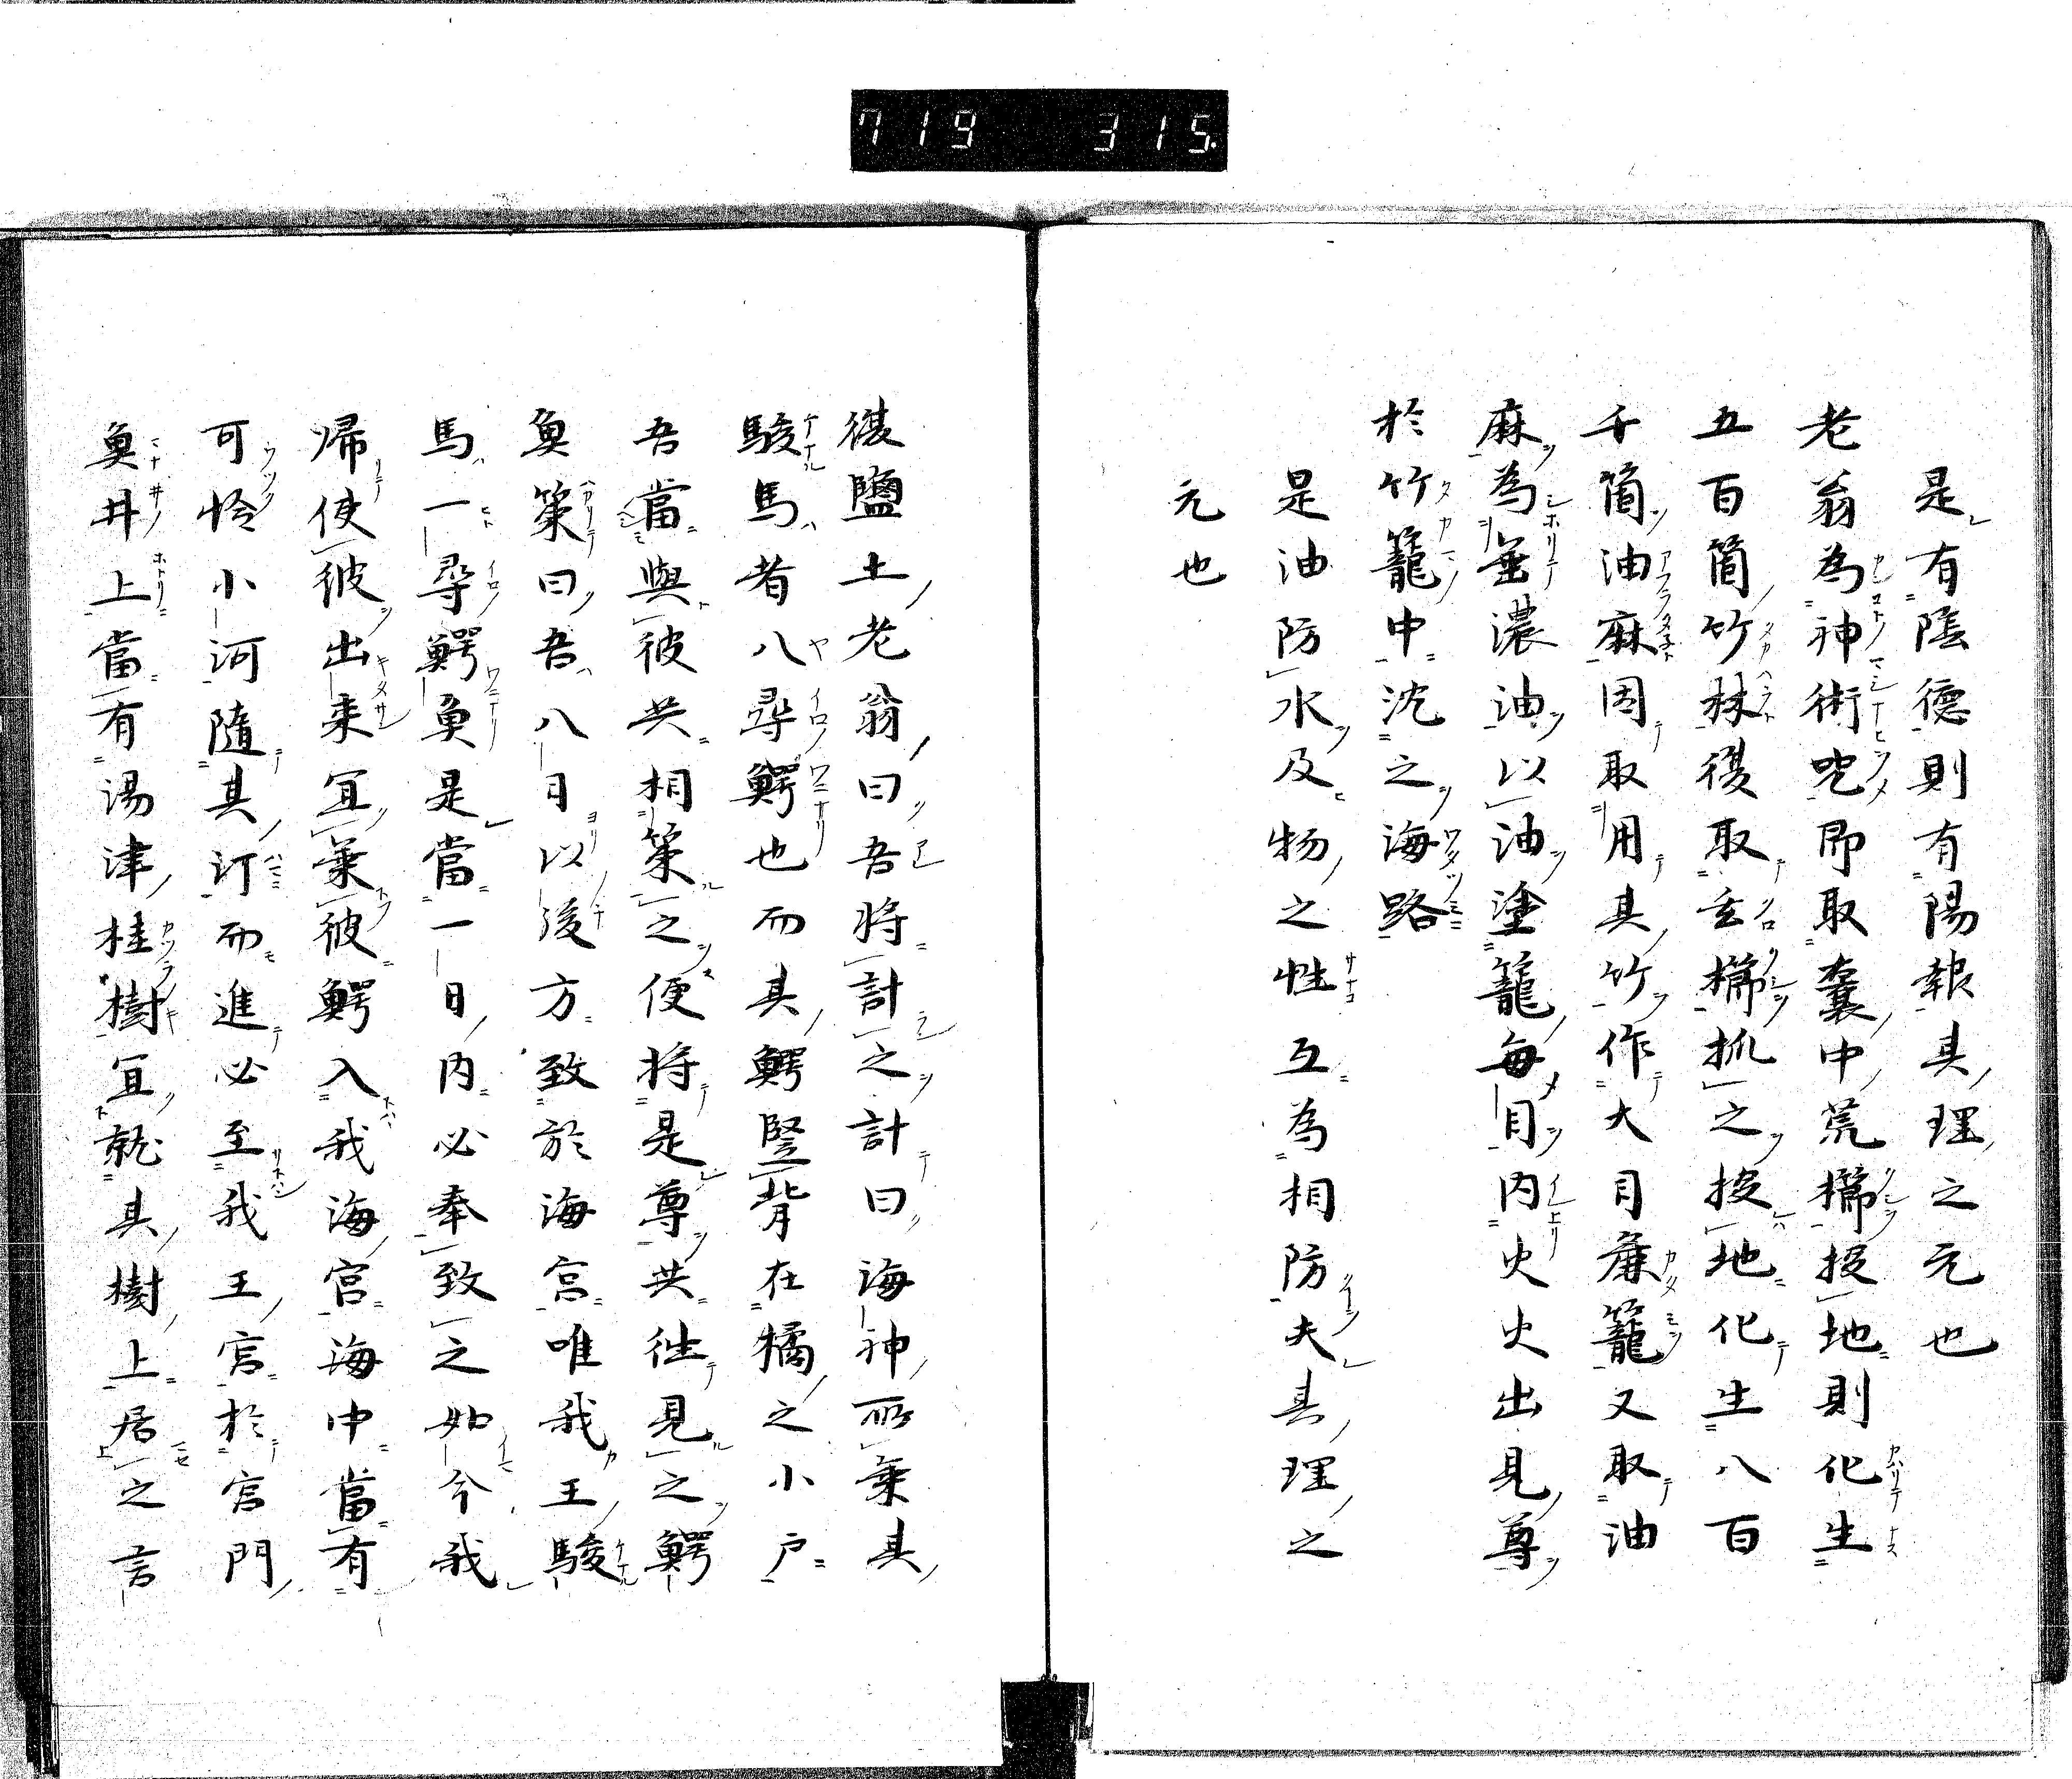 719 315
是有陰德則有陽報其理之元也
老翁為神術咒即取囊中荒櫛投地則化生
五百箇竹林復取玄櫛抓之投地化生八百
千箇油麻因取用其竹作大目麁籠又取油
麻為垂濃油以油塗籠每目內火火出見尊
於竹籠中沈之海路
是油防水及物之性互為相防夫其理之
元也
復鹽土老翁曰吾將計之計曰海神所乘其
駿馬者八尋鰐也而其鰐竪背在橘之小戶
吾當與彼共相策之便將是尊共徃見之鰐
魚策曰吾八日以後方致於海宮唯我王駿
馬一尋鰐魚是當一日內必奉致之如今我
帰使彼出来冝乘彼鰐入我海宮海中當有
可怜小河隨其汀而進必至我王宮於宮門
魚井上當有湯津桂樹冝就其樹上居之言